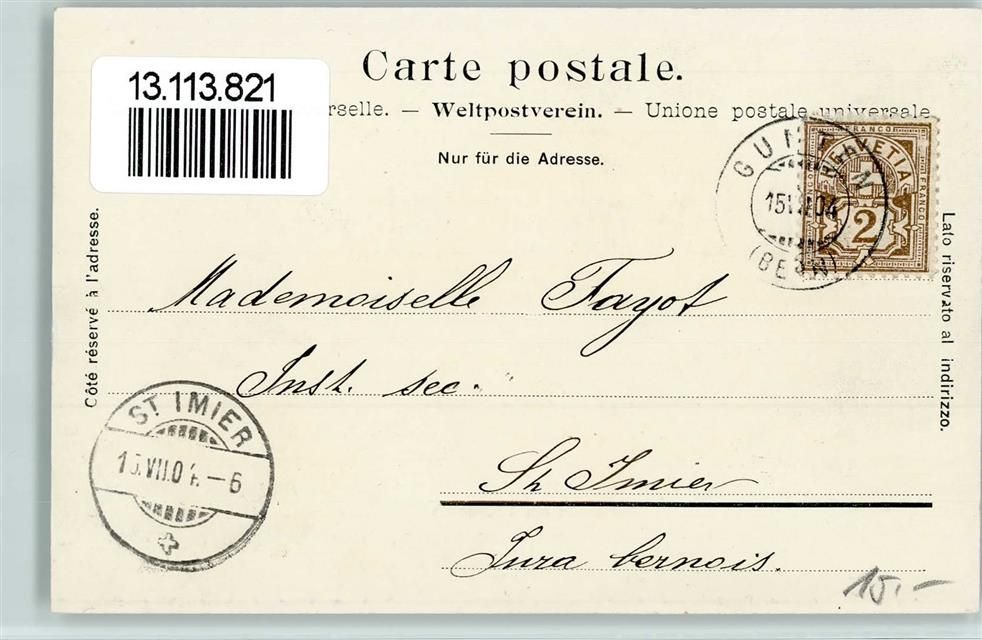 13.113.821
Carte postale.
rselle. — Weltpostverein. — Unione postale universale
Nur für die Adresse.
Côté réservé à l'adresse.
Lato riservato al indirizzo.
FRANCO
HELVETIA
FRANCO
2
GUNTEN
15 VII 04
(BERN)
Mademoiselle Fayot
Inst. sec.
St Imier
Jura bernois.
ST IMIER
15.VII.04.–6
15.–